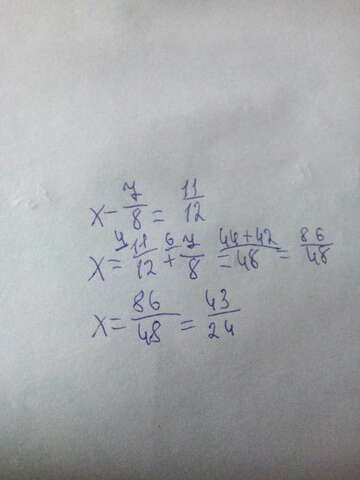 x - 7/8 = 11/12
x = 4 11/12 + 6 7/8 = 44+42/48 = 86/48
x = 86/48 = 43/24